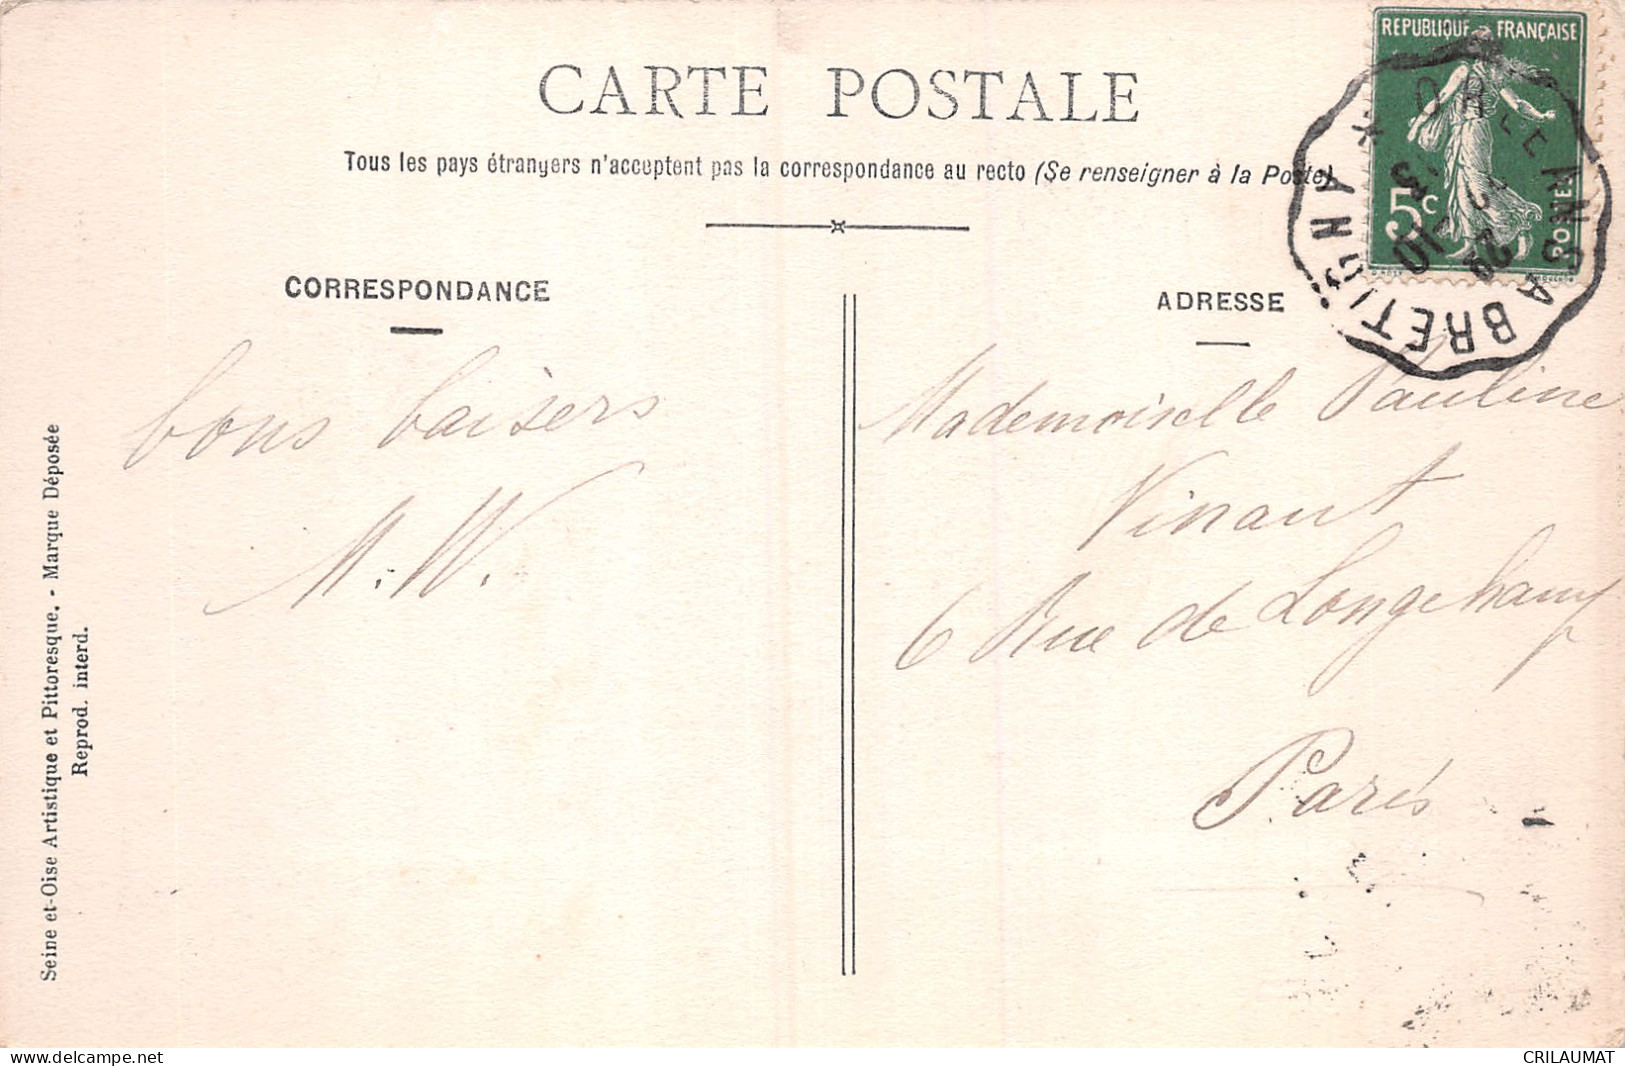 CARTE POSTALE
Tous les pays étrangers n'acceptent pas la correspondance au recto (Se renseigner à la Poste)
REPUBLIQUE FRANÇAISE
5c
POSTES
ORLEANS A BRETIGNY
CORRESPONDANCE
ADRESSE
bons baisers
M. W.
Mademoiselle Pauline
Vinant
6 Rue de Longchamp
Paris
Seine et-Oise Artistique et Pittoresque. - Marque Déposée
Reprod. interd.
www.delcampe.net
CRILAUMAT